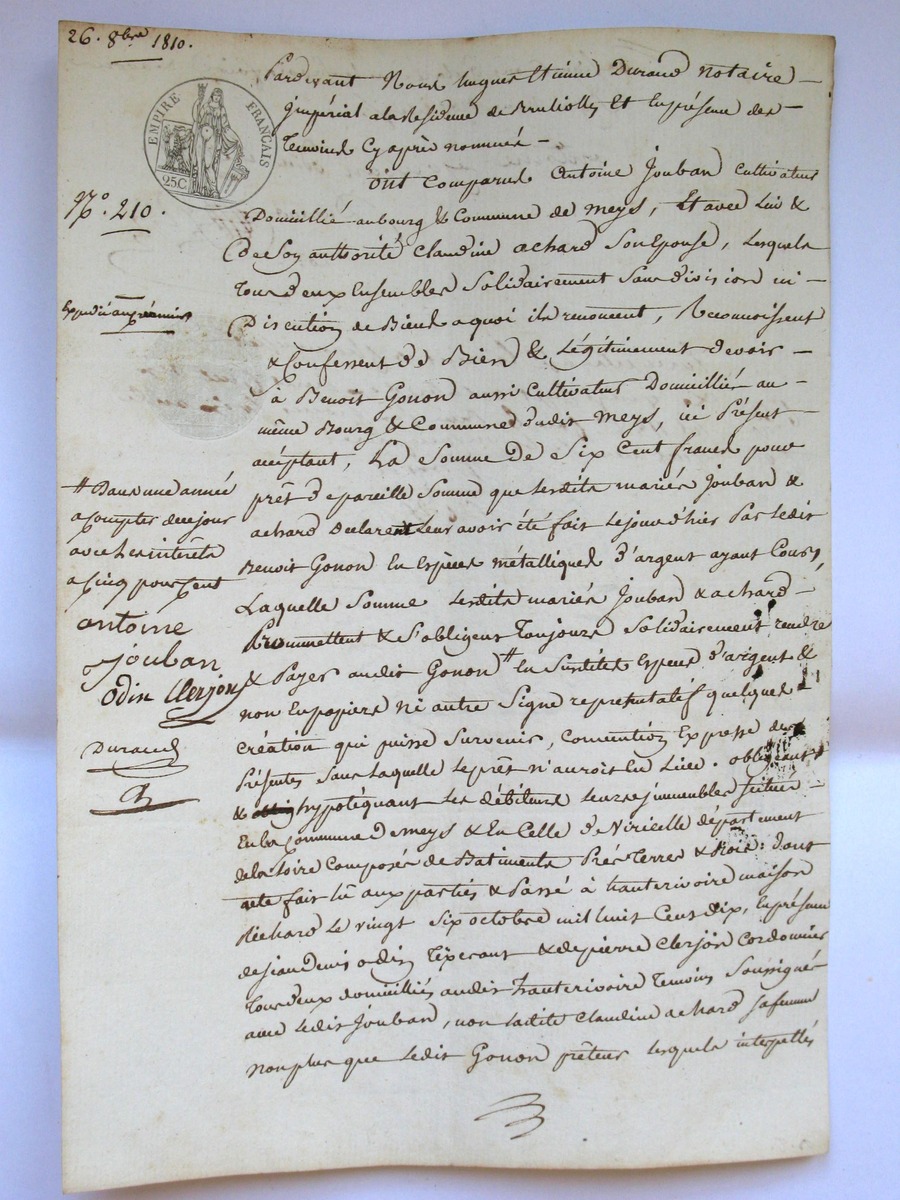 26. 8bre 1810.
EMPIRE FRANÇAIS
25C
No. 210.
Expedié au créancier
Pardevant Nous hugues Etienne Durand notaire
impérial a la Residence de Brulliolles Et En présence des
Temoins Cy après nommés
ont Comparus Antoine Jouban Cultivateur
Domicillié au bourg & Commune de Meys, Et avec Lui &
De Son authorité Claudine achard Son Epouse, Lesquels
Tous deux Ensembles Solidairement Sans division ni
Discution de Biens a quoi ils renoncent, Reconnoissent
& Confessent de Bien & Légitimement devoir
à Benoit Gonon aussi Cultivateur Domicillié au
même Bourg & Commune dudit Meys, ici Présent
acceptant, La Somme De Six Cent francs pour
prêt de pareille Somme que Lesdits mariés Jouban &
achard Declarent Leur avoir été fait Le jour d'hier Par Ledit
Benoit Gonon En Espèces métalliques d'argent ayant Cours,
Laquelle Somme Lesdits mariés Jouban & achard
Promettent & S'obligent Toujours Solidairement rendre
& Payer audit Gonon # En Susdites Espèces d'argent &
non En papiers ni autre Signe représentatif quelques
Création qui puisse Survenir, Convention Expresse des
Présentes Sans Laquelle Le prêt n'auroit Eu Lieu. obligeant
& hypotéquant Les débiteurs Leurs immeubles Scitués
En la Commune de Meys & En Celle de Viricelle département
de la Loire Composés de Batiments Prés Terres & Bois: dont
acte fait lu aux parties & Passé à hauterivoire maison
Richard Le vingt Six octobre mil huit Cent dix, En présence
de jean Denis odin Tixerant & de pierre Clerjon Cordonnier
Tous deux domicilliés audit hauterivoire Temoins Soussignés
avec Ledit Jouban, non Ladite Claudine achard Sa femme
non plus que Ledit Gonon prêteur Lesquels interpellés
# Dans une année
a Compter de ce jour
avec Les intérêts
a Cinq pour Cent
antoine
jouban
odin Clerjon
Durand